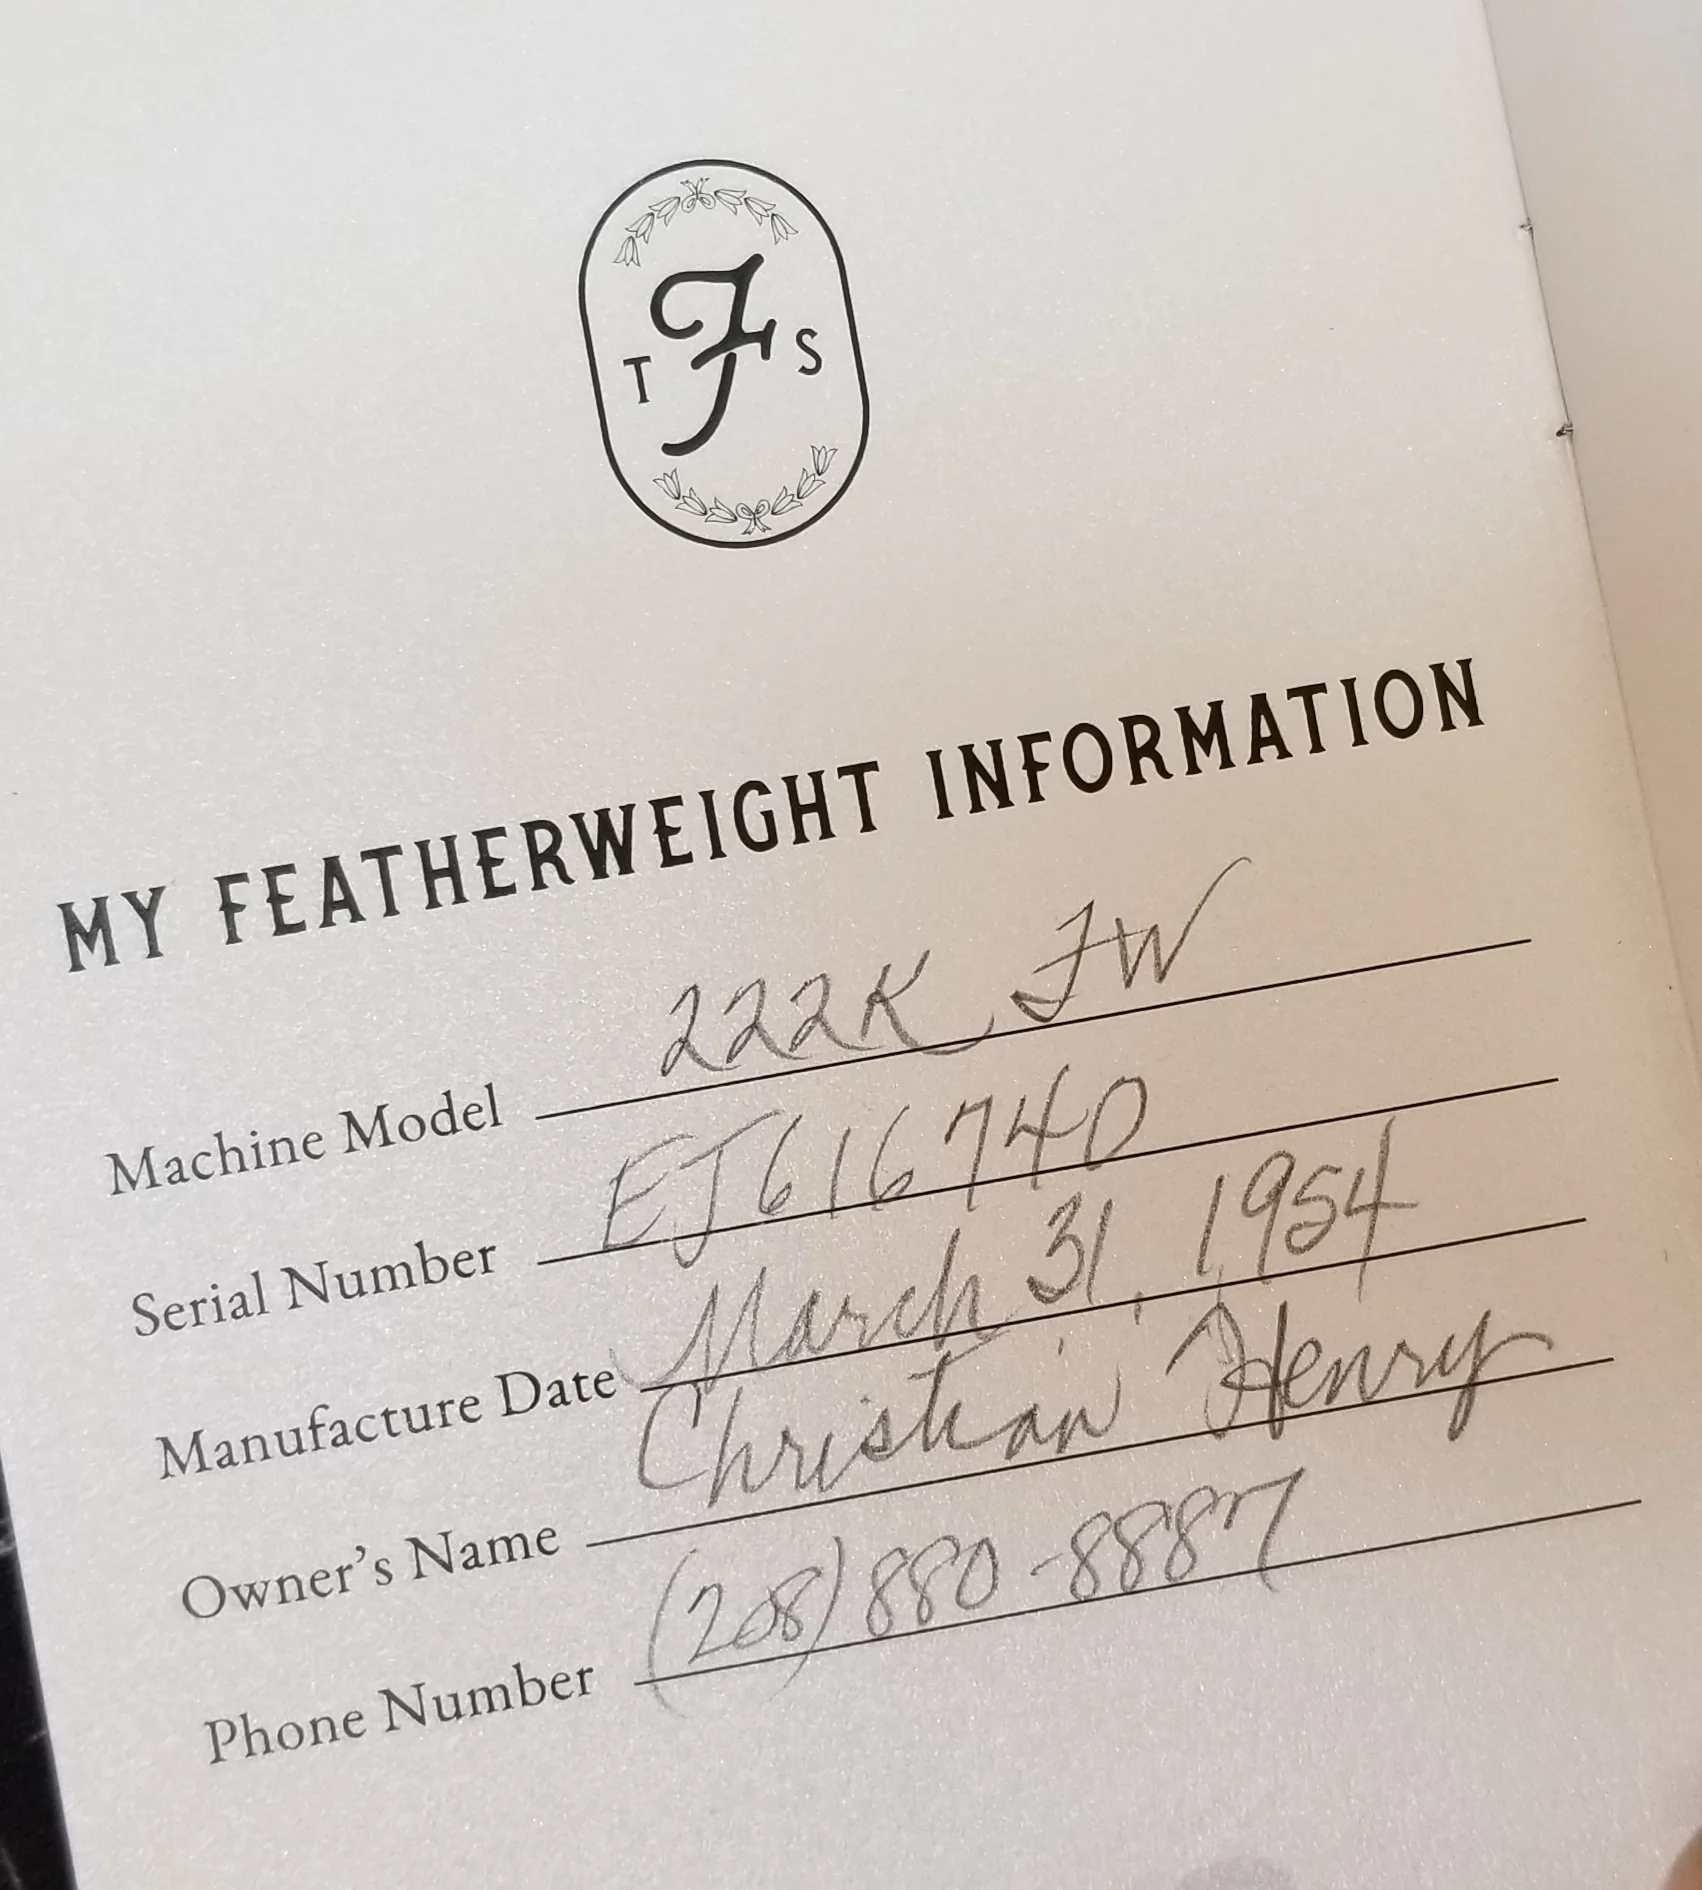 T F S
MY FEATHERWEIGHT INFORMATION
Machine Model 222K FW
Serial Number EJ616740
Manufacture Date March 31, 1954
Owner's Name Christian Henry
Phone Number (208) 880-8887